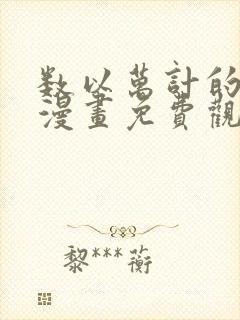 数以萬計的
漫畫免費觀
黎***蘅